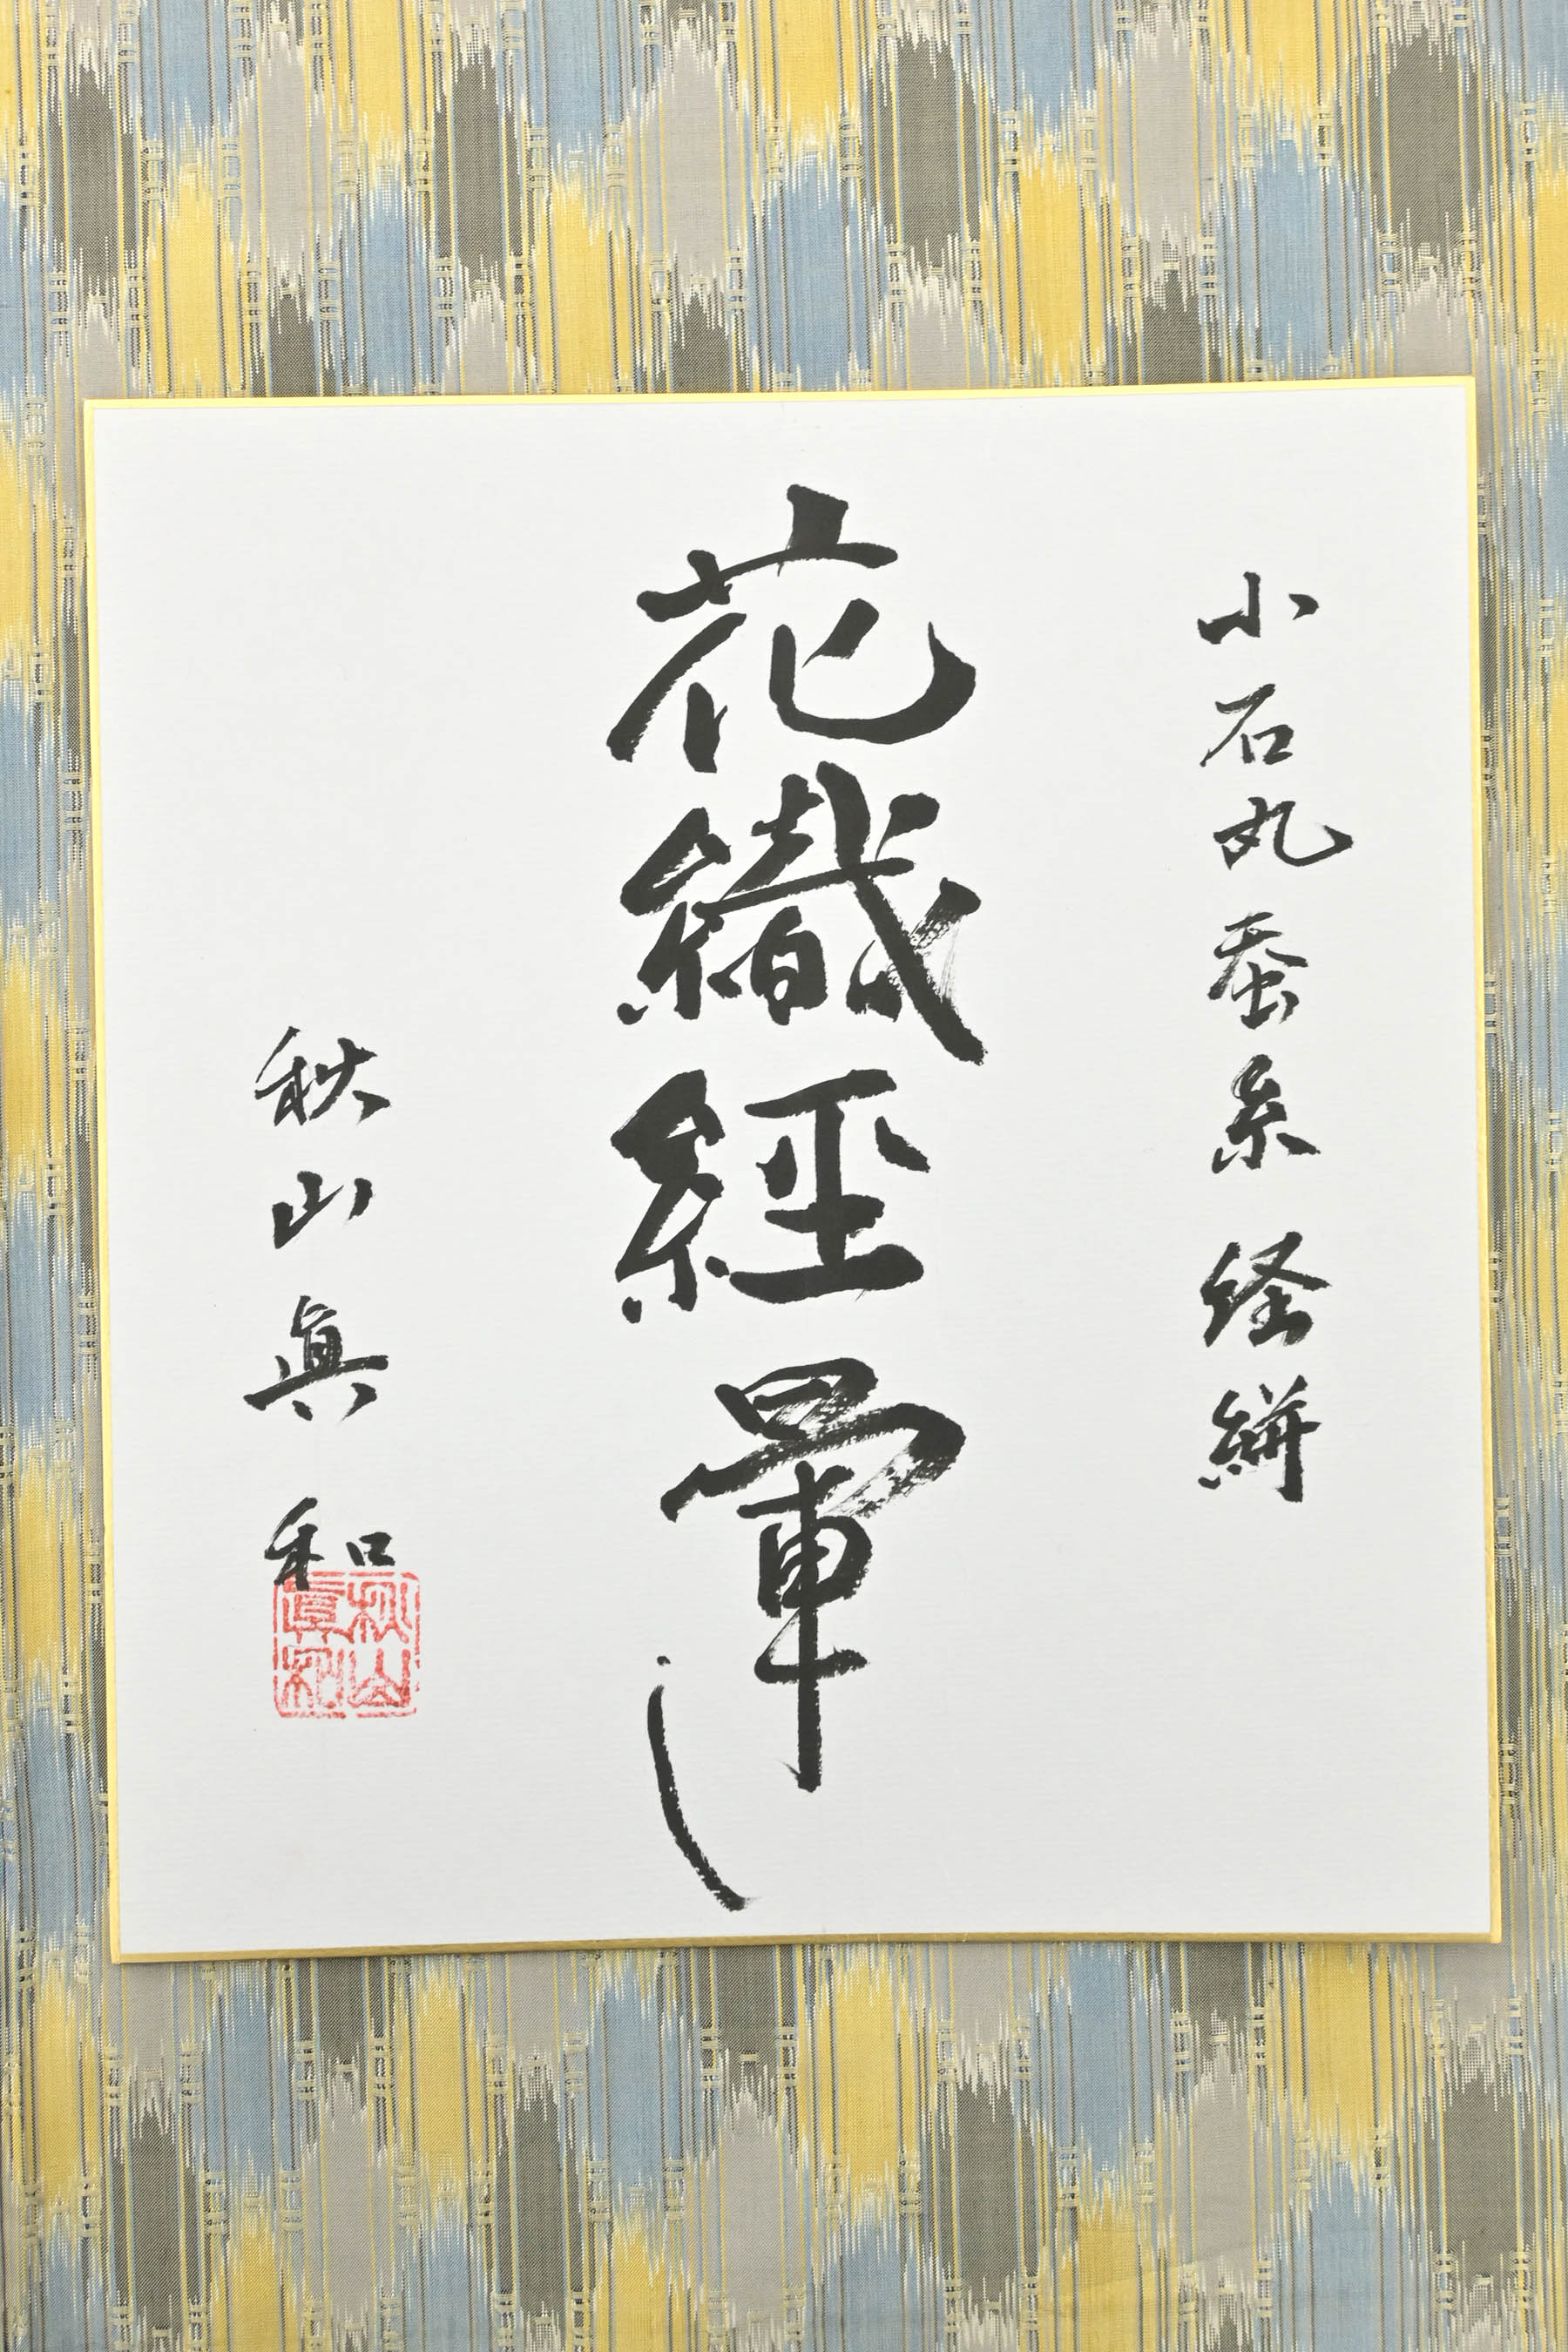 小石丸蚕糸 経絣
花織經暈し
秋山眞和
秋山眞和